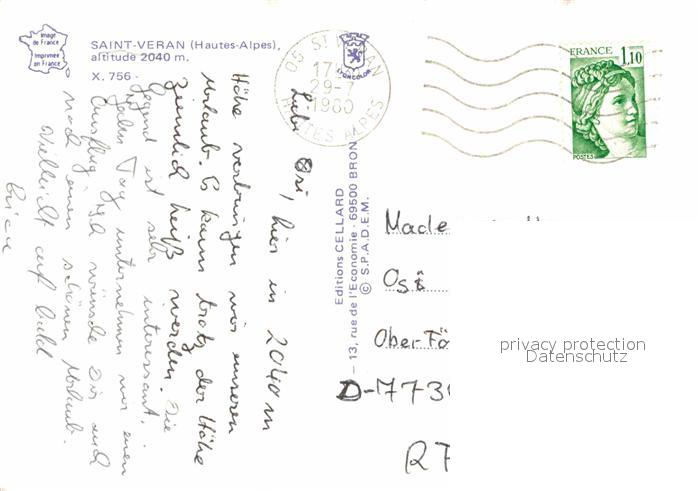 Image
de France
Imprimée
en France
SAINT-VERAN (Hautes-Alpes),
altitude 2040 m.
X. 756 -
05 ST VERAN
17
29-7
1980
HAUTES ALPES
LYONCOLOR
FRANCE
1,10
POSTES
hier in 2040 m
Höhe verbringen wir unseren
Urlaub. Es kann trotz der Höhe
ziemlich heiß werden. Die
Gegend ist sehr interessant,
jeden Tag unternehmen wir einen
Ausflug. Ich wünsche Dir auch
noch einen schönen Urlaub.
Vielleicht auf bald
Editions CELLARD
– 13, rue de l'Economie - 69500 BRON
© S.P.A.D.E.M.
Made
Osi
Ober-Fö
D-773
R7
privacy protection
Datenschutz